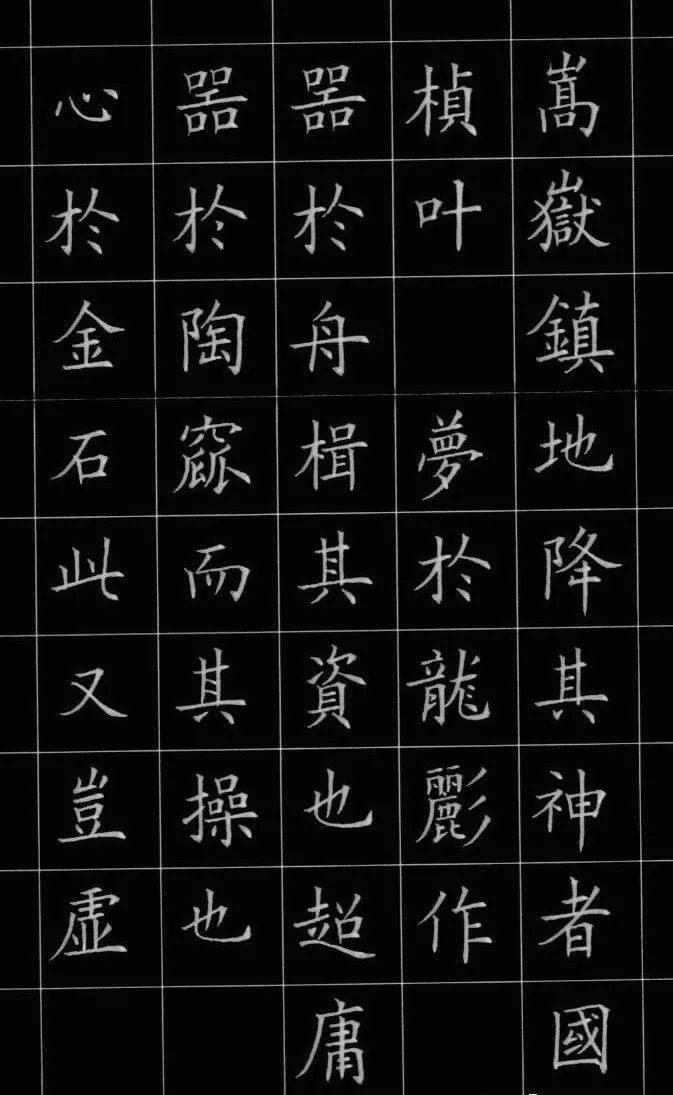 嵩嶽鎮地降其神者國
楨叶 夢於龍彲作
噐於舟楫其資也超庸
噐於陶窳而其操也
心於金石此又豈虚